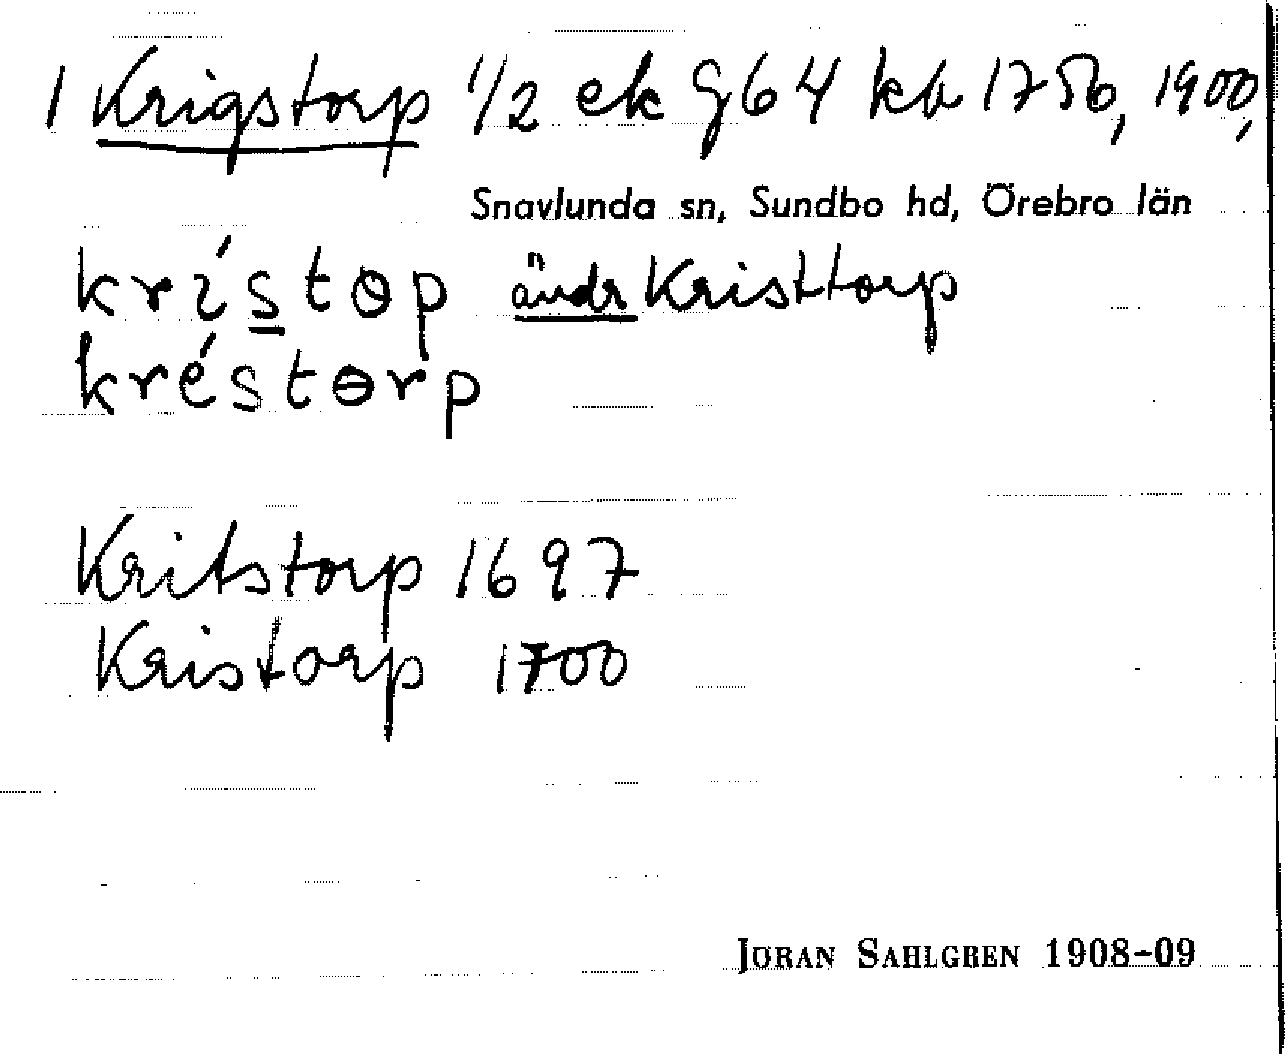 1 Krigstorp 1/2 ek G64 kb 1750, 1900,
Snavlunda sn, Sundbo hd, Örebro län
krístɵp ändr Kristtorp
kréstɵrp
Kritstorp 1697
Kristorp 1700
JÖRAN SAHLGREN 1908-09